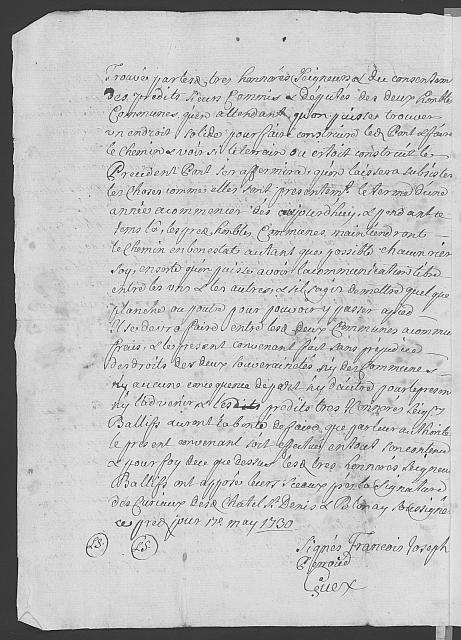 Trouvé par lesd. tres honnorés Seigneurs & du consentem
des predits Sieurs Commis & députés des deux honbles
Communes, qu'en attendant qu'on puisse trouver
un endroit solide pour faire construire led. Pont & faire
le chemin & voir si le terrain où estoit construit le
Precedent Pont se raffermira, qu'on laissera subsister
les choses comme elles sont presentem.t le terme d'une
année a commencer dès aujourdhuy, & pendant ce
tems là, les pred. honbles Communes maintiendront
le Chemin en bon estat autant que possible chacun rier
soy, en sorte qu'on puisse avoir la communication libre
entre les uns & les autres, & s'il s'agit de mettre quelque
planche ou poutre pour pouvoir y passer a pied
Il se devra faire entre lesd. deux Communes a commu
frais, & le present convenant fait sans prejudice
des droits des deux souverainetés ny des Communes
ny aucune consequence de part ny d'autre pour le presen
ny l'advenir & predits tres honnorés Seigrs
Ballifs auront la bonté de faire que par leur authorité
le present convenant soit effectué en tout son contenu
& pour foy de ce que dessus lesd. tres honnorés Seigneu
Ballifs ont apposé leurs sceaux & par la signature
des Curiaux desd. Chatel St Denis & Soussigné
ce pred. jour 17e may 1730
LS. LS.
Signés François Joseph
Genoud